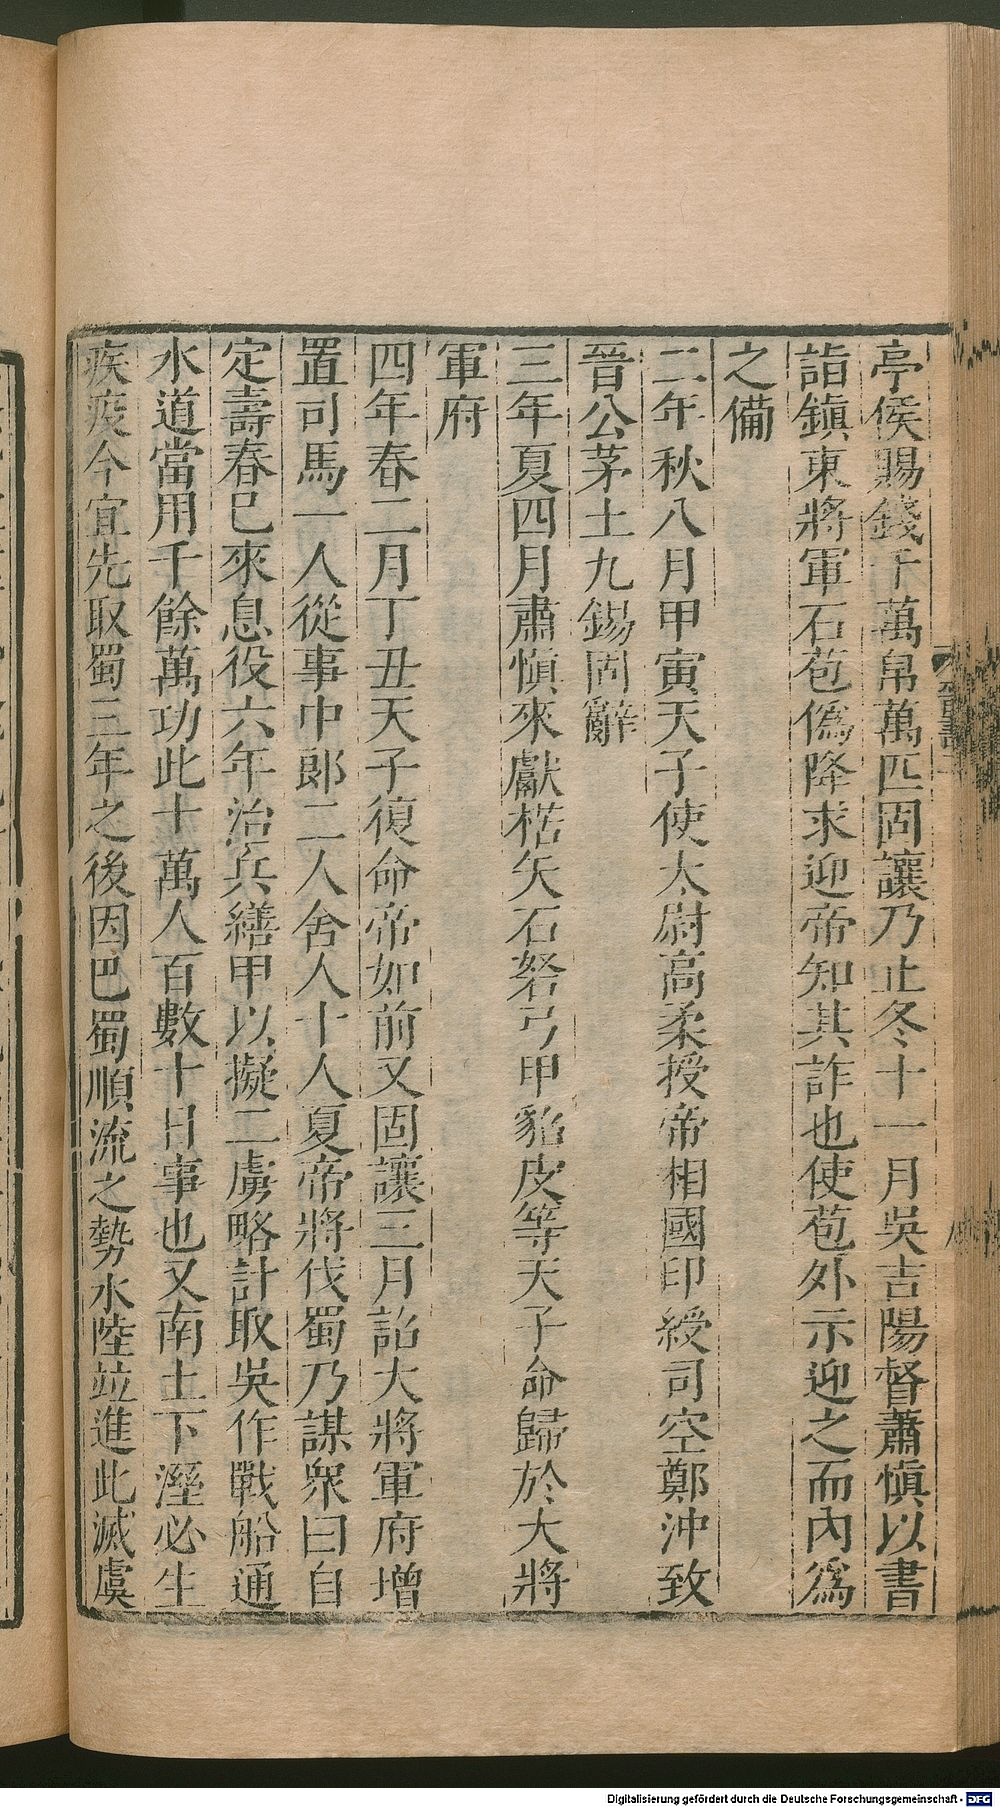 亭侯賜錢千萬帛萬匹固讓乃止冬十一月吳吉陽督蕭愼以書
詣鎮東將軍石苞僞降求迎帝知其詐也使苞外示迎之而內爲
之備
二年秋八月甲寅天子使太尉高柔授帝相國印綬司空鄭沖致
晉公茅土九錫固辭
三年夏四月肅愼來獻楛矢石砮弓甲貂皮等天子命歸於大將
軍府
四年春二月丁丑天子復命帝如前又固讓三月詔大將軍府增
置司馬一人從事中郎二人舍人十人夏帝將伐蜀乃謀衆曰自
定壽春已來息役六年治兵繕甲以擬二虜略計取吳作戰船通
水道當用千餘萬功此十萬人百數十日事也又南土下溼必生
疾疫今宜先取蜀三年之後因巴蜀順流之勢水陸竝進此滅虞
Digitalisierung gefördert durch die Deutsche Forschungsgemeinschaft - DFG